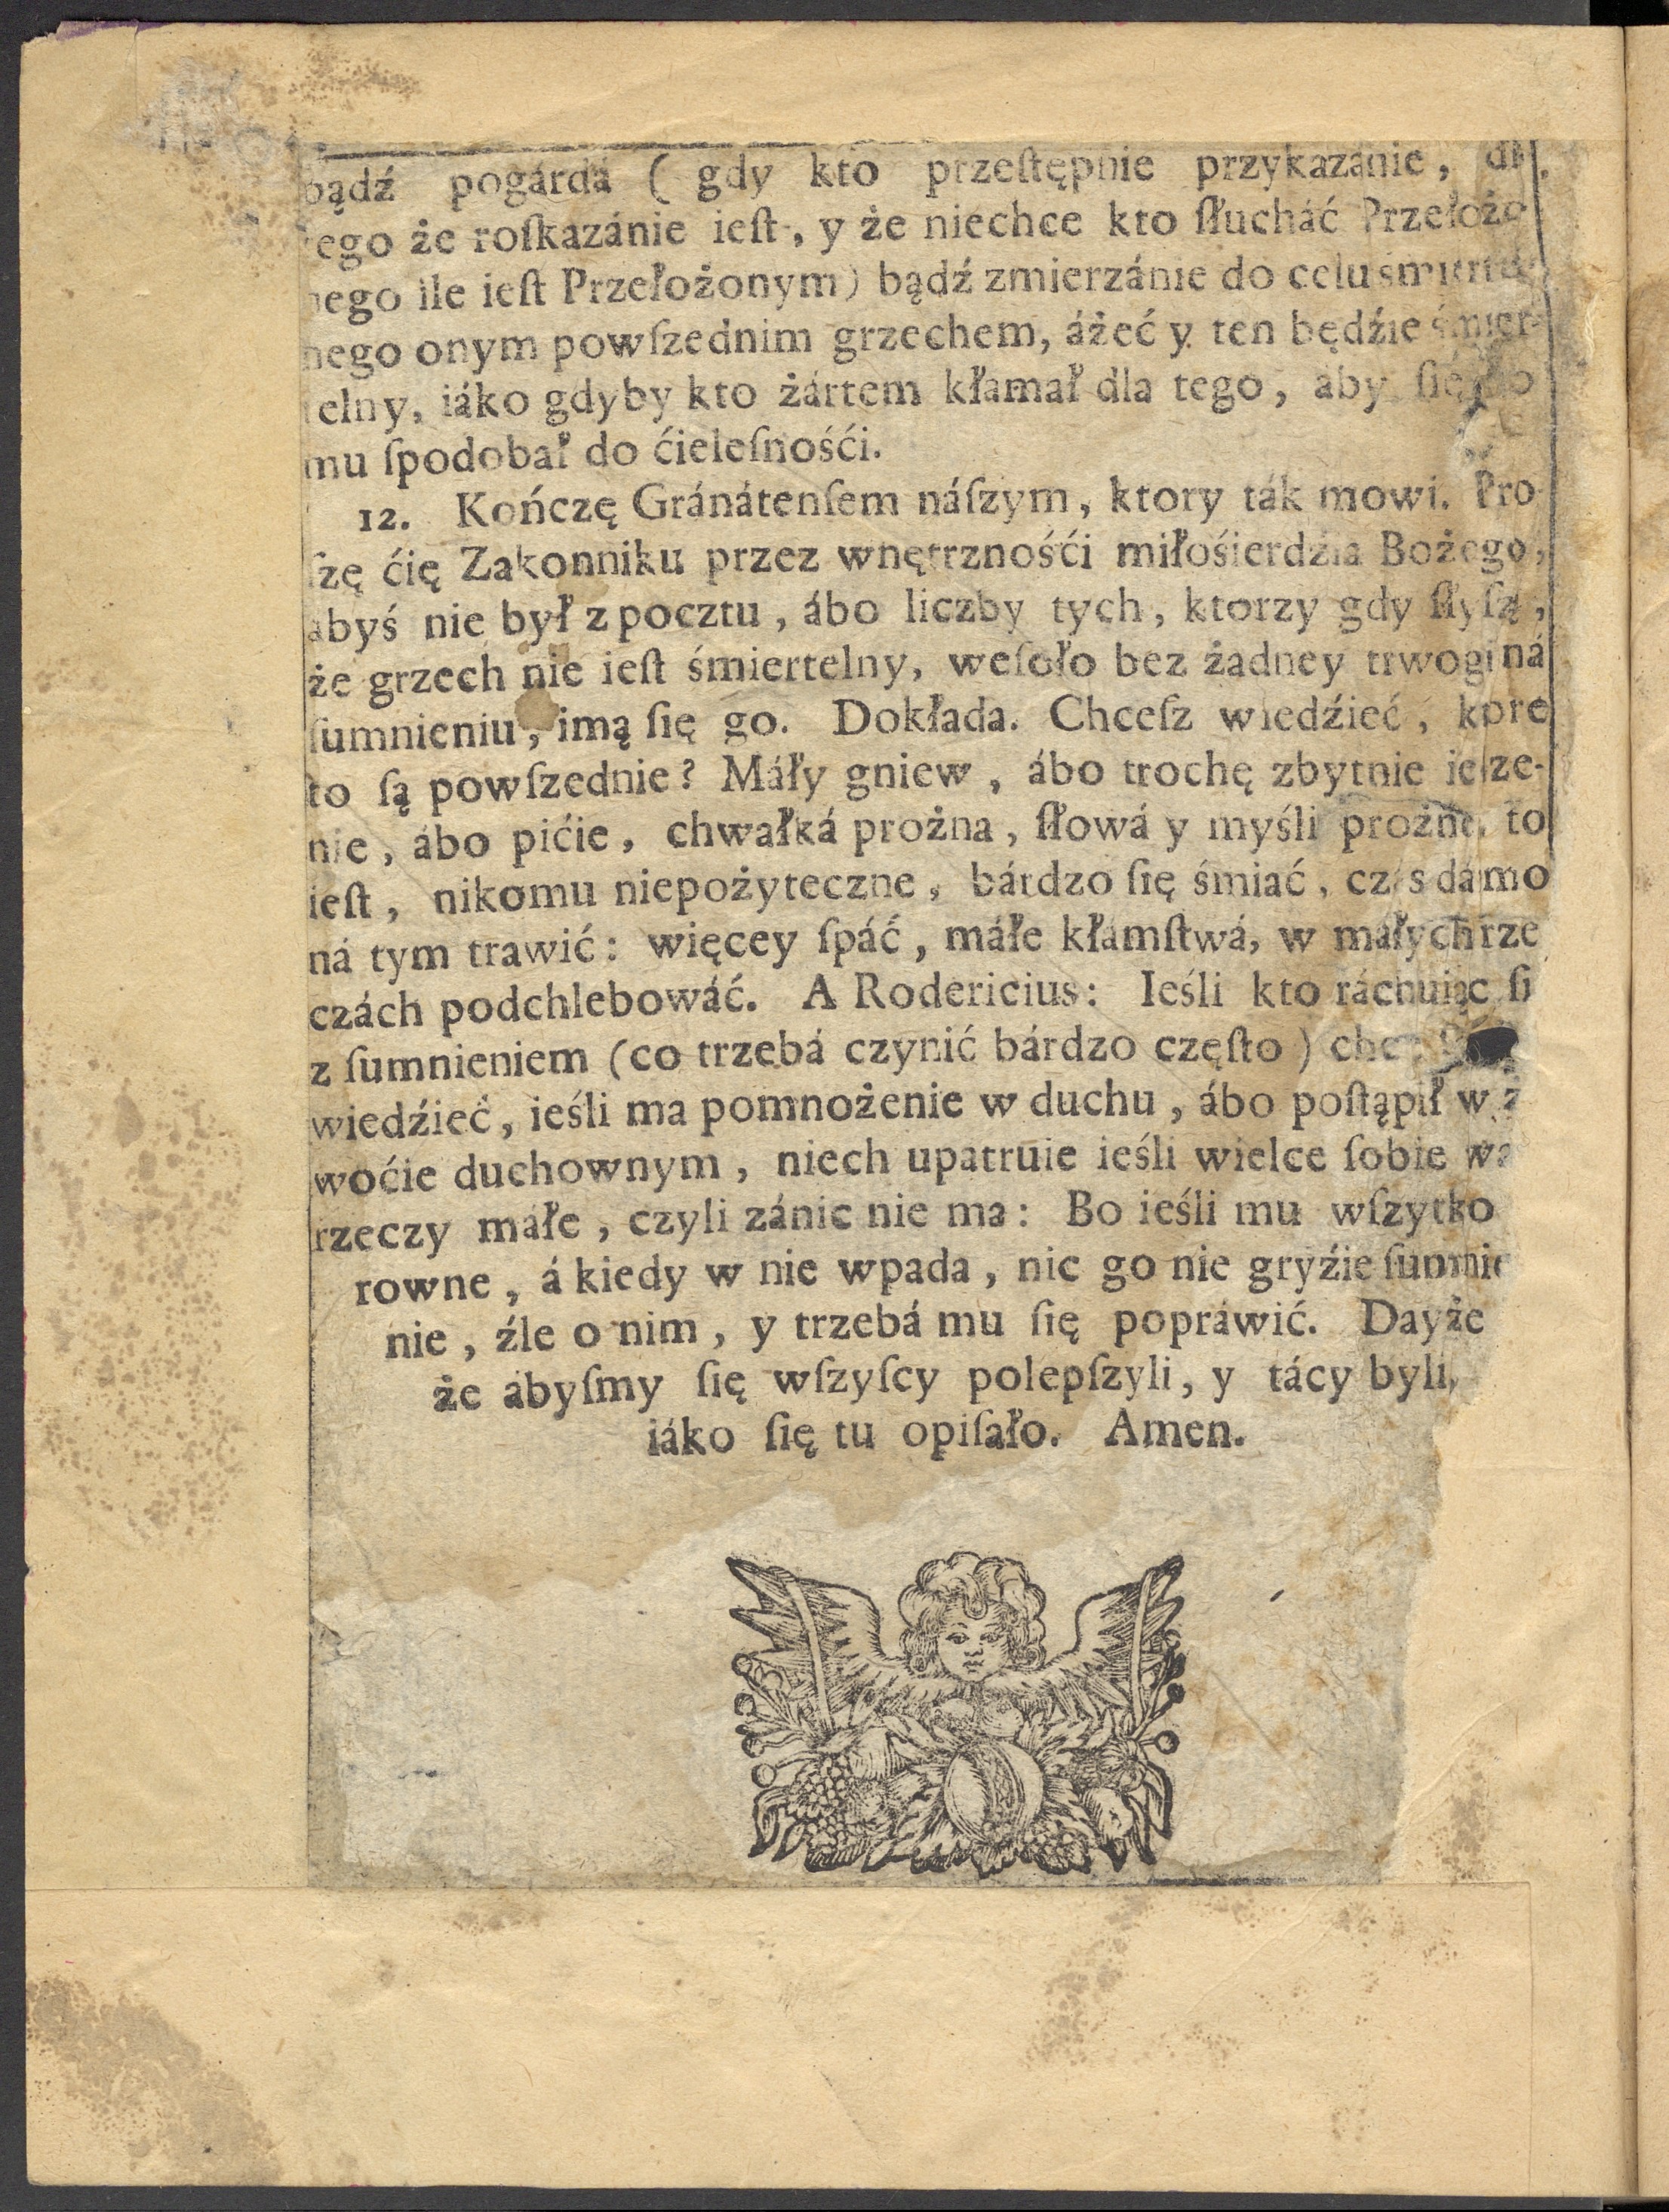 bądź pogárdá ( gdy kto przeſtępnie przykazánie,
tego że roſkazánie ieſt, y że niechce kto ſłucháć Przełożo
nego ile ieſt Przełożonym) bądź zmierzánie do celu
nego onym powſzednim grzechem, áżeć y ten będźie śmier-
telny, iáko gdyby kto żártem kłamał dla tego, aby ſię
mu ſpodobał do ćieleſnośći.
12. Kończę Gránátenſem náſzym, ktory ták mowi. Pro-
ſzę ćię Zakonniku przez wnętrznośći miłośierdźia Bożego,
abyś nie był z pocztu, ábo liczby tych, ktorzy gdy ſłyſzą,
że grzech nie ieſt śmiertelny, weſoło bez żadney trwogi ná
ſumnieniu, imą ſię go. Dokłada. Chceſz wiedźieć,
to ſą powſzednie? Máły gniew, ábo trochę zbytnie iedze-
nie, ábo pićie, chwałká prożna, ſłowá y myśli prożne, to
ieſt, nikomu niepożyteczne, bárdzo ſię śmiać, czas dármo
ná tym trawić: więcey ſpáć, máłe kłamſtwá, w małych rze
czách podchlebowáć. A Rodericius: Ieśli kto ráchuiąc ſi
z ſumnieniem (co trzebá czynić bárdzo częſto)
wiedźieć, ieśli ma pomnożenie w duchu, ábo poſtąpił w ż
woćie duchownym, niech upatruie ieśli wielce ſobie wa
rzeczy małe, czyli zánic nie ma: Bo ieśli mu wſzytko
rowne, á kiedy w nie wpada, nic go nie gryźie ſumnie
nie, źle o nim, y trzebá mu ſię popráwić. Dayże
że abyſmy ſię wſzyſcy polepſzyli, y tácy byli,
iáko ſię tu opiſało. Amen.